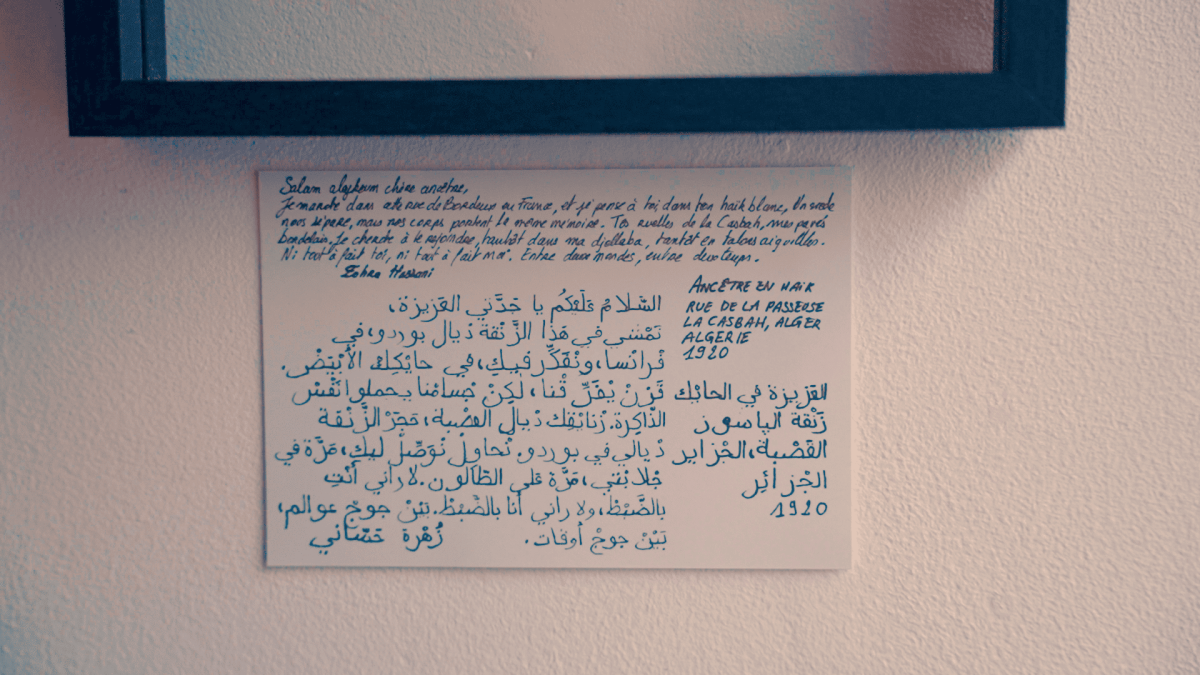 Salam alaykoum chère ancêtre,
Je marche dans cette rue de Bordeaux en France, et je pense à toi, dans ton haïk blanc. Un siècle
nous sépare, mais nos corps portent la même mémoire. Tes ruelles de la Casbah, mes pavés
bordelais. Je cherche à te rejoindre, tantôt dans ma djellaba, tantôt en talons aiguilles.
Ni tout à fait toi, ni tout à fait moi. Entre deux mondes, entre deux temps.
Zohra Hassani
ANCÊTRE EN HAIK
RUE DE LA PASSEUSE
LA CASBAH, ALGER
ALGERIE
1920
السَّلامُ عَلَيْكُم يا جَدَّتي العَزيزة،
نَمْشي في هَذا الزَّنْقة دْيال بوردو، في
فْرانْسا، ونْفَكَّر فيكِ، في حايْكِكْ الأَبْيَضْ.
قَرْنْ يْفَرَّقْنا، لَكِنْ جْسامْنا يحملوا نَفْسْ
الذَّاكِرة. زْنايْقِك دْيال القَصْبة، حَجَر الزَّنْقة
دْيالي في بوردو. نُحاوِلْ نُوَصِّلْ ليكِ، مَرَّة في
جْلابْتي، مَرَّة على الطّالون. لا راني أَنْتِ
بالضَّبْطْ، ولا راني أنا بالضَّبْطْ. بَيْنْ جوجْ عوالم،
بَيْنْ جوجْ أوقات.
زُهْرة حَسّاني
العَزيزة في الحايْك
زَنْقة الپاسوز
القَصْبة، الجْزاير
الجْزائِر
1920